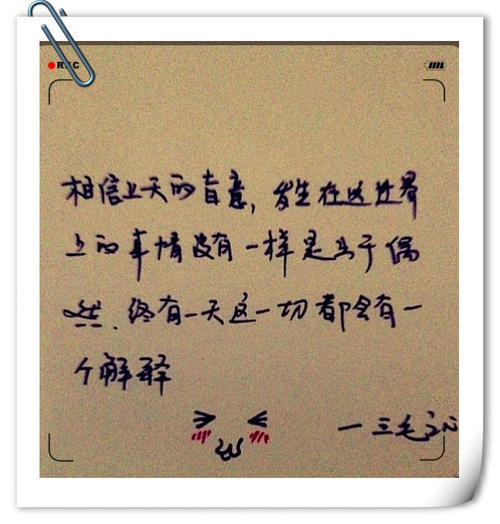 REC
相信上天的旨意，发生在这世界
上的事情没有一样是出于偶
然．终有一天这一切都会有一
个解释
一三毛